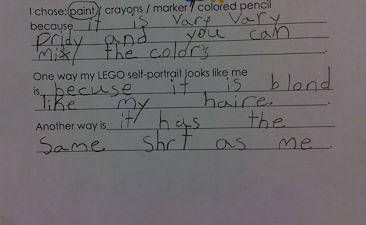 I chose: paint / crayons / marker / colored pencil
because it is vary vary
pridy and you can
mix the colors
One way my LEGO self-portrait looks like me
is becuse it is blond
like my haire.
Another way is it has the
same shrt as me.